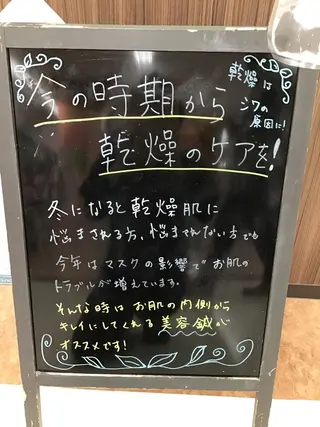 今の時期から
乾燥のケアを!
乾燥は
シワの
原因に!
冬になると乾燥肌に
悩まされる方、悩まされない方でも
今年はマスクの影響でお肌の
トラブルが増えています。
そんな時はお肌の内側から
キレイにしてくれる美容鍼が
オススメです!